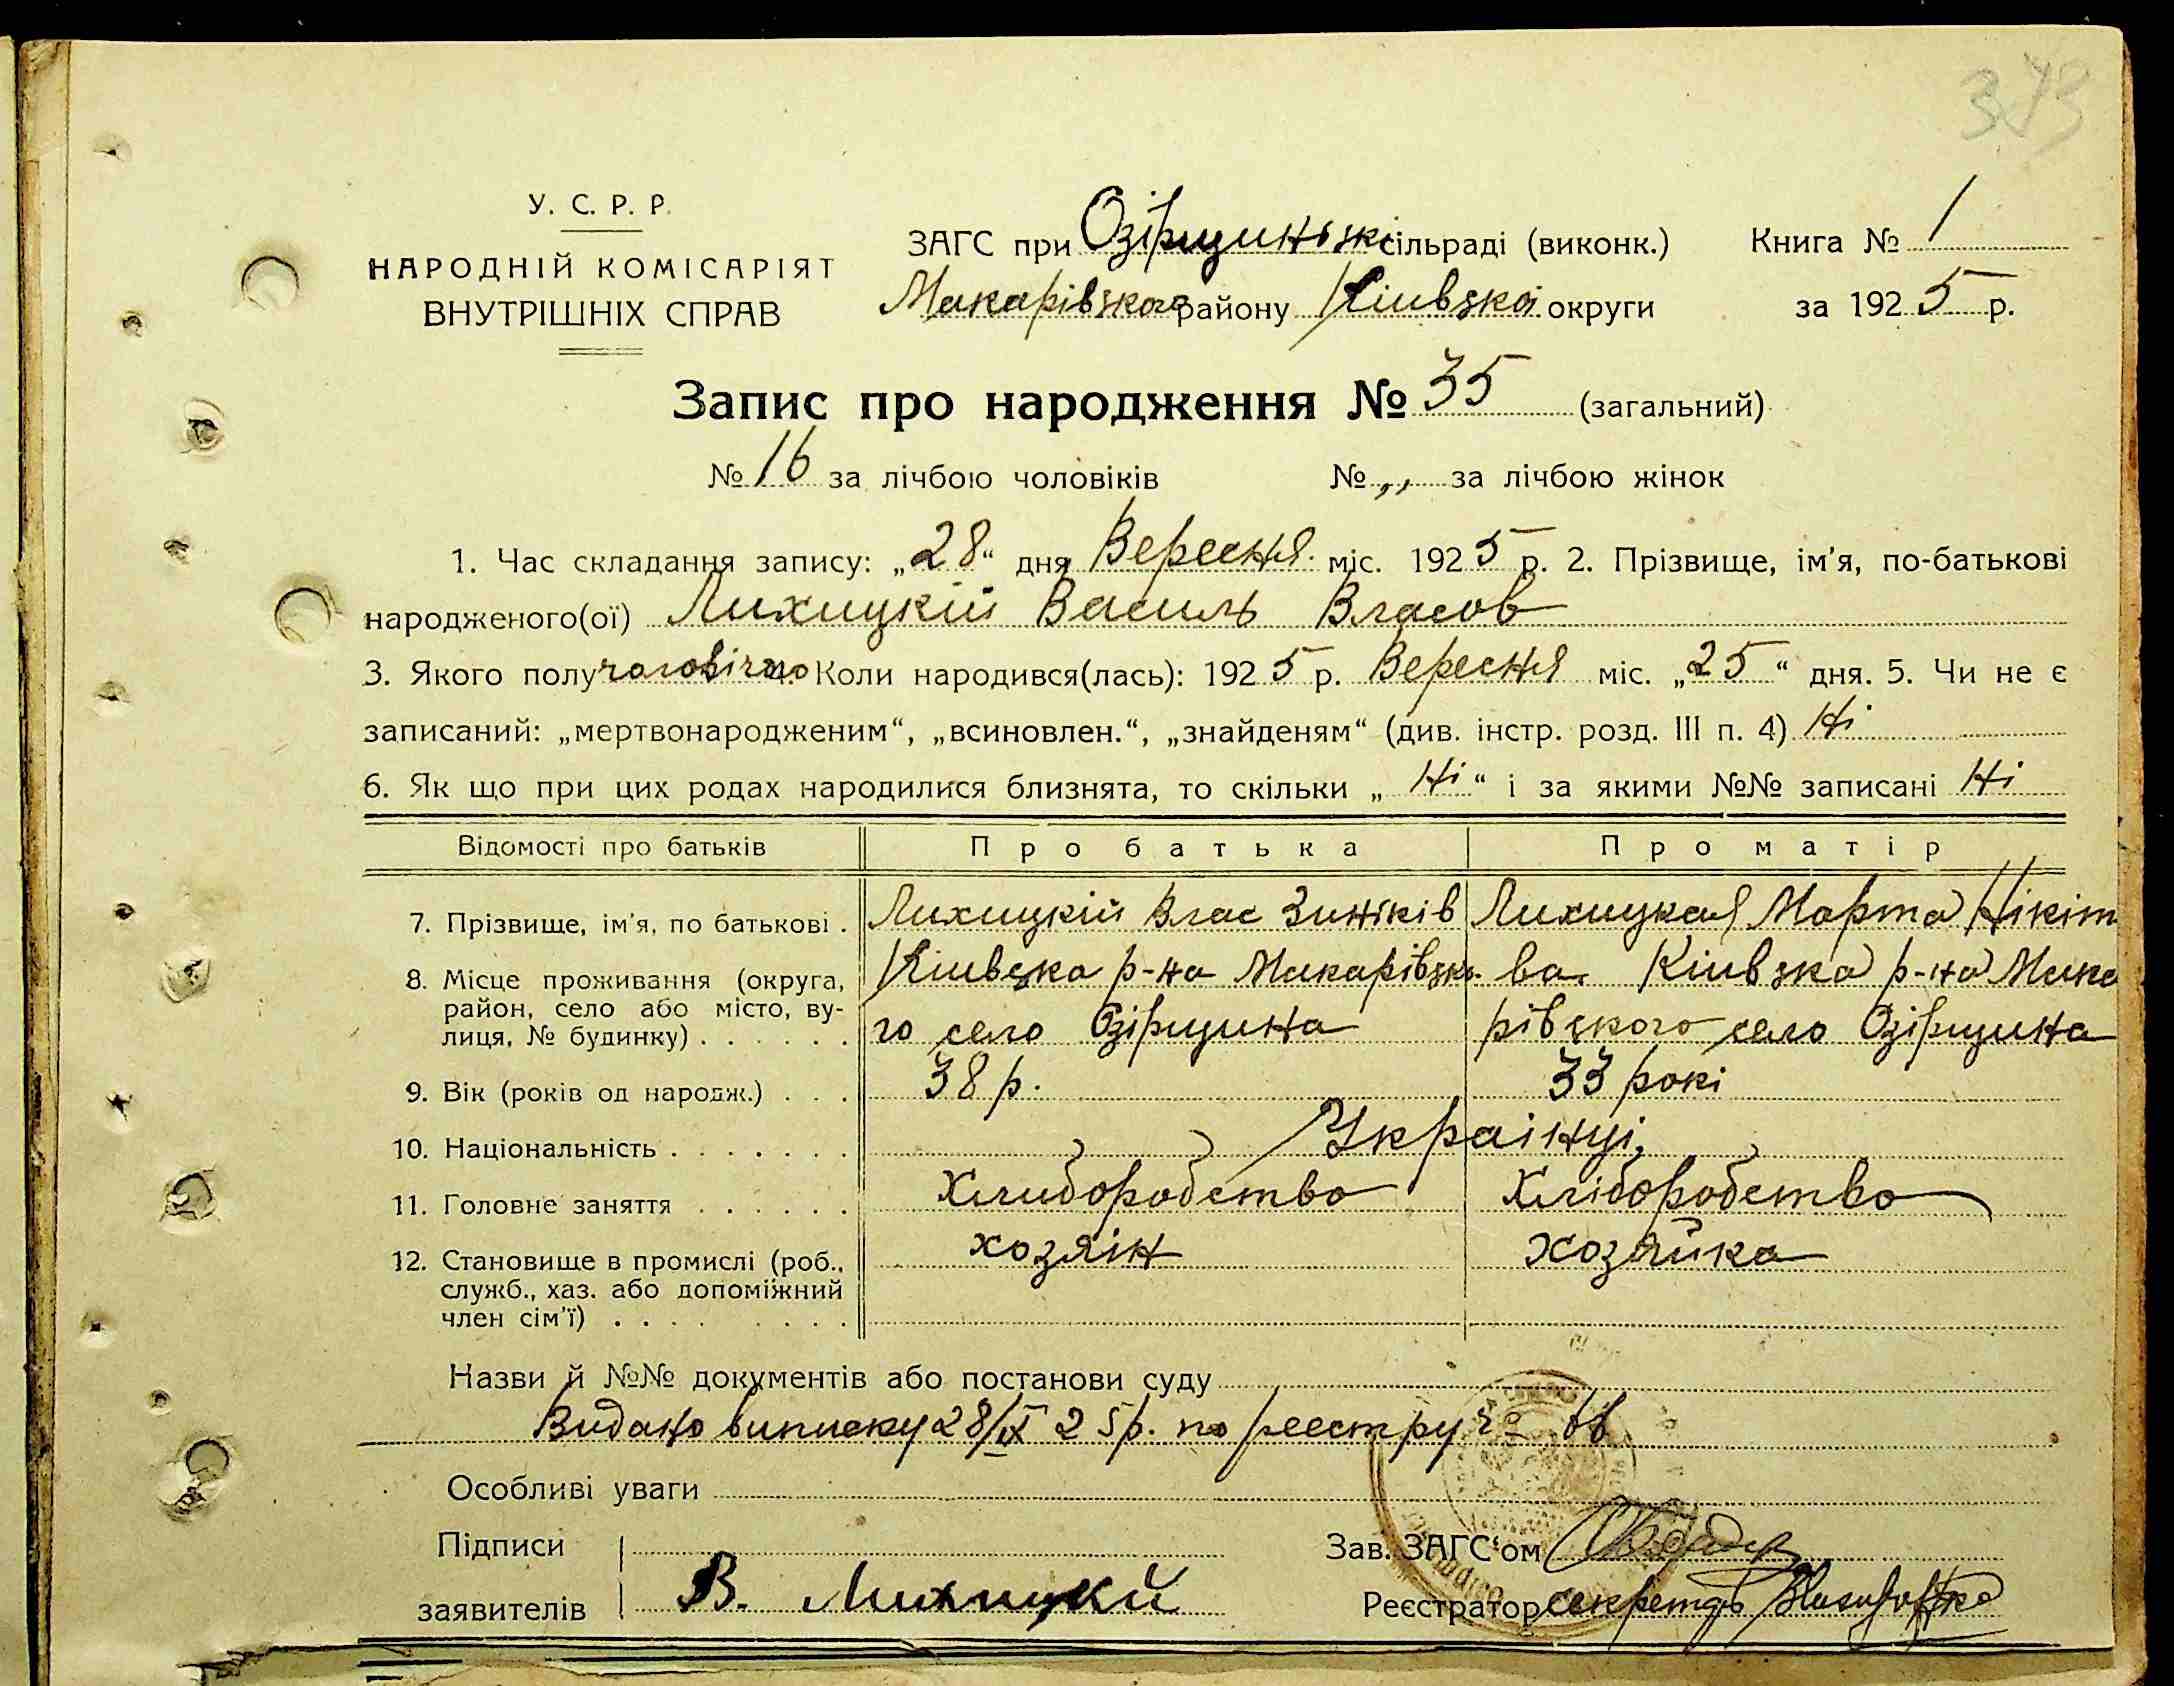 373
У. С. Р. Р.
НАРОДНІЙ КОМІСАРІЯТ
ВНУТРІШНІХ СПРАВ
ЗАГС при Озірщинські сільраді (виконк.) Книга № 1
Макарівского району Кіивскоі округи за 1925 р.
Запис про народження № 35 (загальний)
№ 16 за лічбою чоловіків № „ за лічбою жінок
1. Час складання запису: „28“ дня Вересня міс. 1925 р. 2. Прізвище, ім'я, по-батькові
народженого(ої) Лихицкій Василь Власов
3. Якого полу чоловічого 4. Коли народився(лась): 1925 р. Вересня міс. „25“ дня. 5. Чи не є
записаний: „мертвонародженим“, „всиновлен.“, „знайденям“ (див. інстр. розд. III п. 4) Ні
6. Як що при цих родах народилися близнята, то скільки „Ні“ і за якими №№ записані Ні
Відомості про батьків Про батька Про матір
7. Прізвище, ім'я, по батькові . Лихицкій Влас Зиніків Лихицкая Марта Нікіт
8. Місце проживання (округа, Кіивска р-на Макарівско- ва. Кіивска р-на Мака
район, село або місто, ву- го село Озірщина рівского село Озірщина
лиця, № будинку) . . . . . .
9. Вік (років од народж.) . . . 38 р. 33 рокі
10. Національність . . . . . . . Украінці,
11. Головне заняття . . . . . . Хлибородство Хлібородство
12. Становище в промислі (роб., хозяін хозяйка
служб., хаз. або допоміжний
член сім'ї) . . . . . . . .
Назви й №№ документів або постанови суду
Видано виписку 28/IX 25р. по реестру
Особливі уваги
Підписи Зав. ЗАГС'ом
заявителів В. Лихицкій Реєстратор секретарь